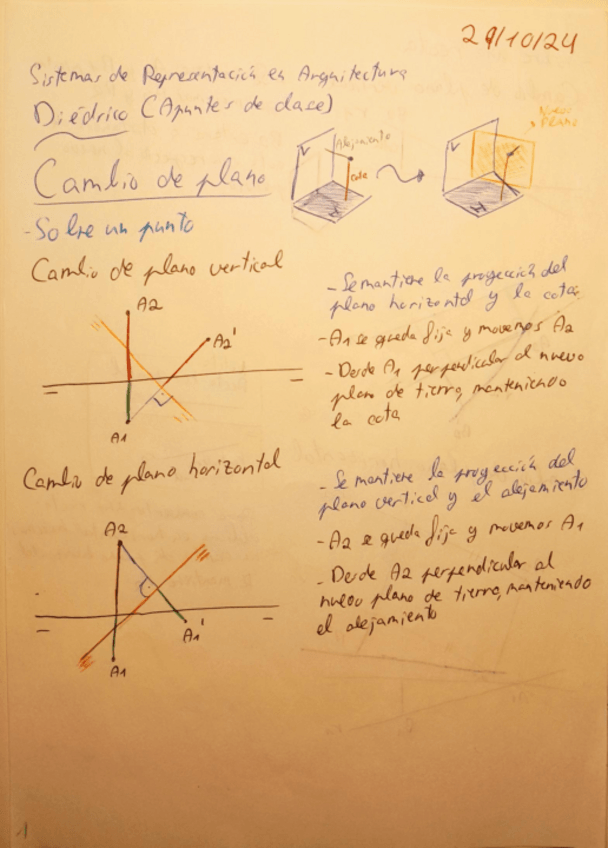 29/10/24
Sistemas de Representación en Arquitectura
Diédrico (Apuntes de clase)
Cambio de plano
V
Alejamiento
cota
H
V
H
Nuevo
Plano
- Sobre un punto
Cambio de plano vertical
A2
A2'
A1
- Se mantiene la proyección del
plano horizontal y la cota
- A1 se queda fija y movemos A2
- Desde A1 perpendicular al nuevo
plano de tierra, manteniendo
la cota
Cambio de plano horizontal
A2
A1'
A1
- Se mantiene la proyección del
plano vertical y el alejamiento
- A2 se queda fija y movemos A1
- Desde A2 perpendicular al
nuevo plano de tierra, manteniendo
el alejamiento
1